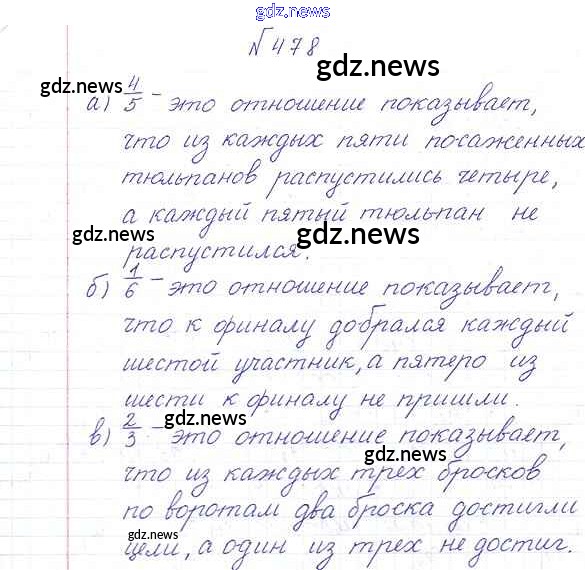 gdz.news
№478
gdz.news
gdz.news
а) 4/5 - это отношение показывает,
что из каждых пяти посаженных
тюльпанов распустились четыре,
а каждый пятый тюльпан не
gdz.news
gdz.news
распустился.
б) 1/6 - это отношение показывает,
что к финалу добрался каждый
шестой участник, а пятеро из
шести к финалу не пришли.
gdz.news
в) 2/3 - это отношение показывает,
gdz.news
что из каждых трех бросков
по воротам два броска достигли
gdz.news
цели, а один из трех не достиг.